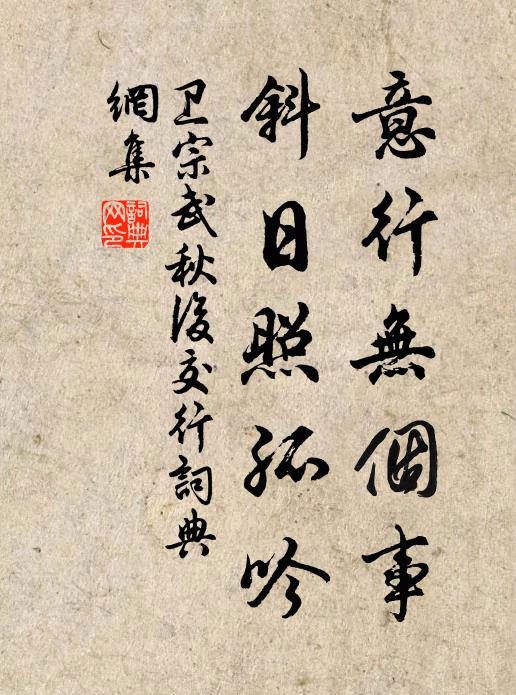 意行無個事
斜日照孤吟
卫宗武秋後交行詞典
網集
詞典網印